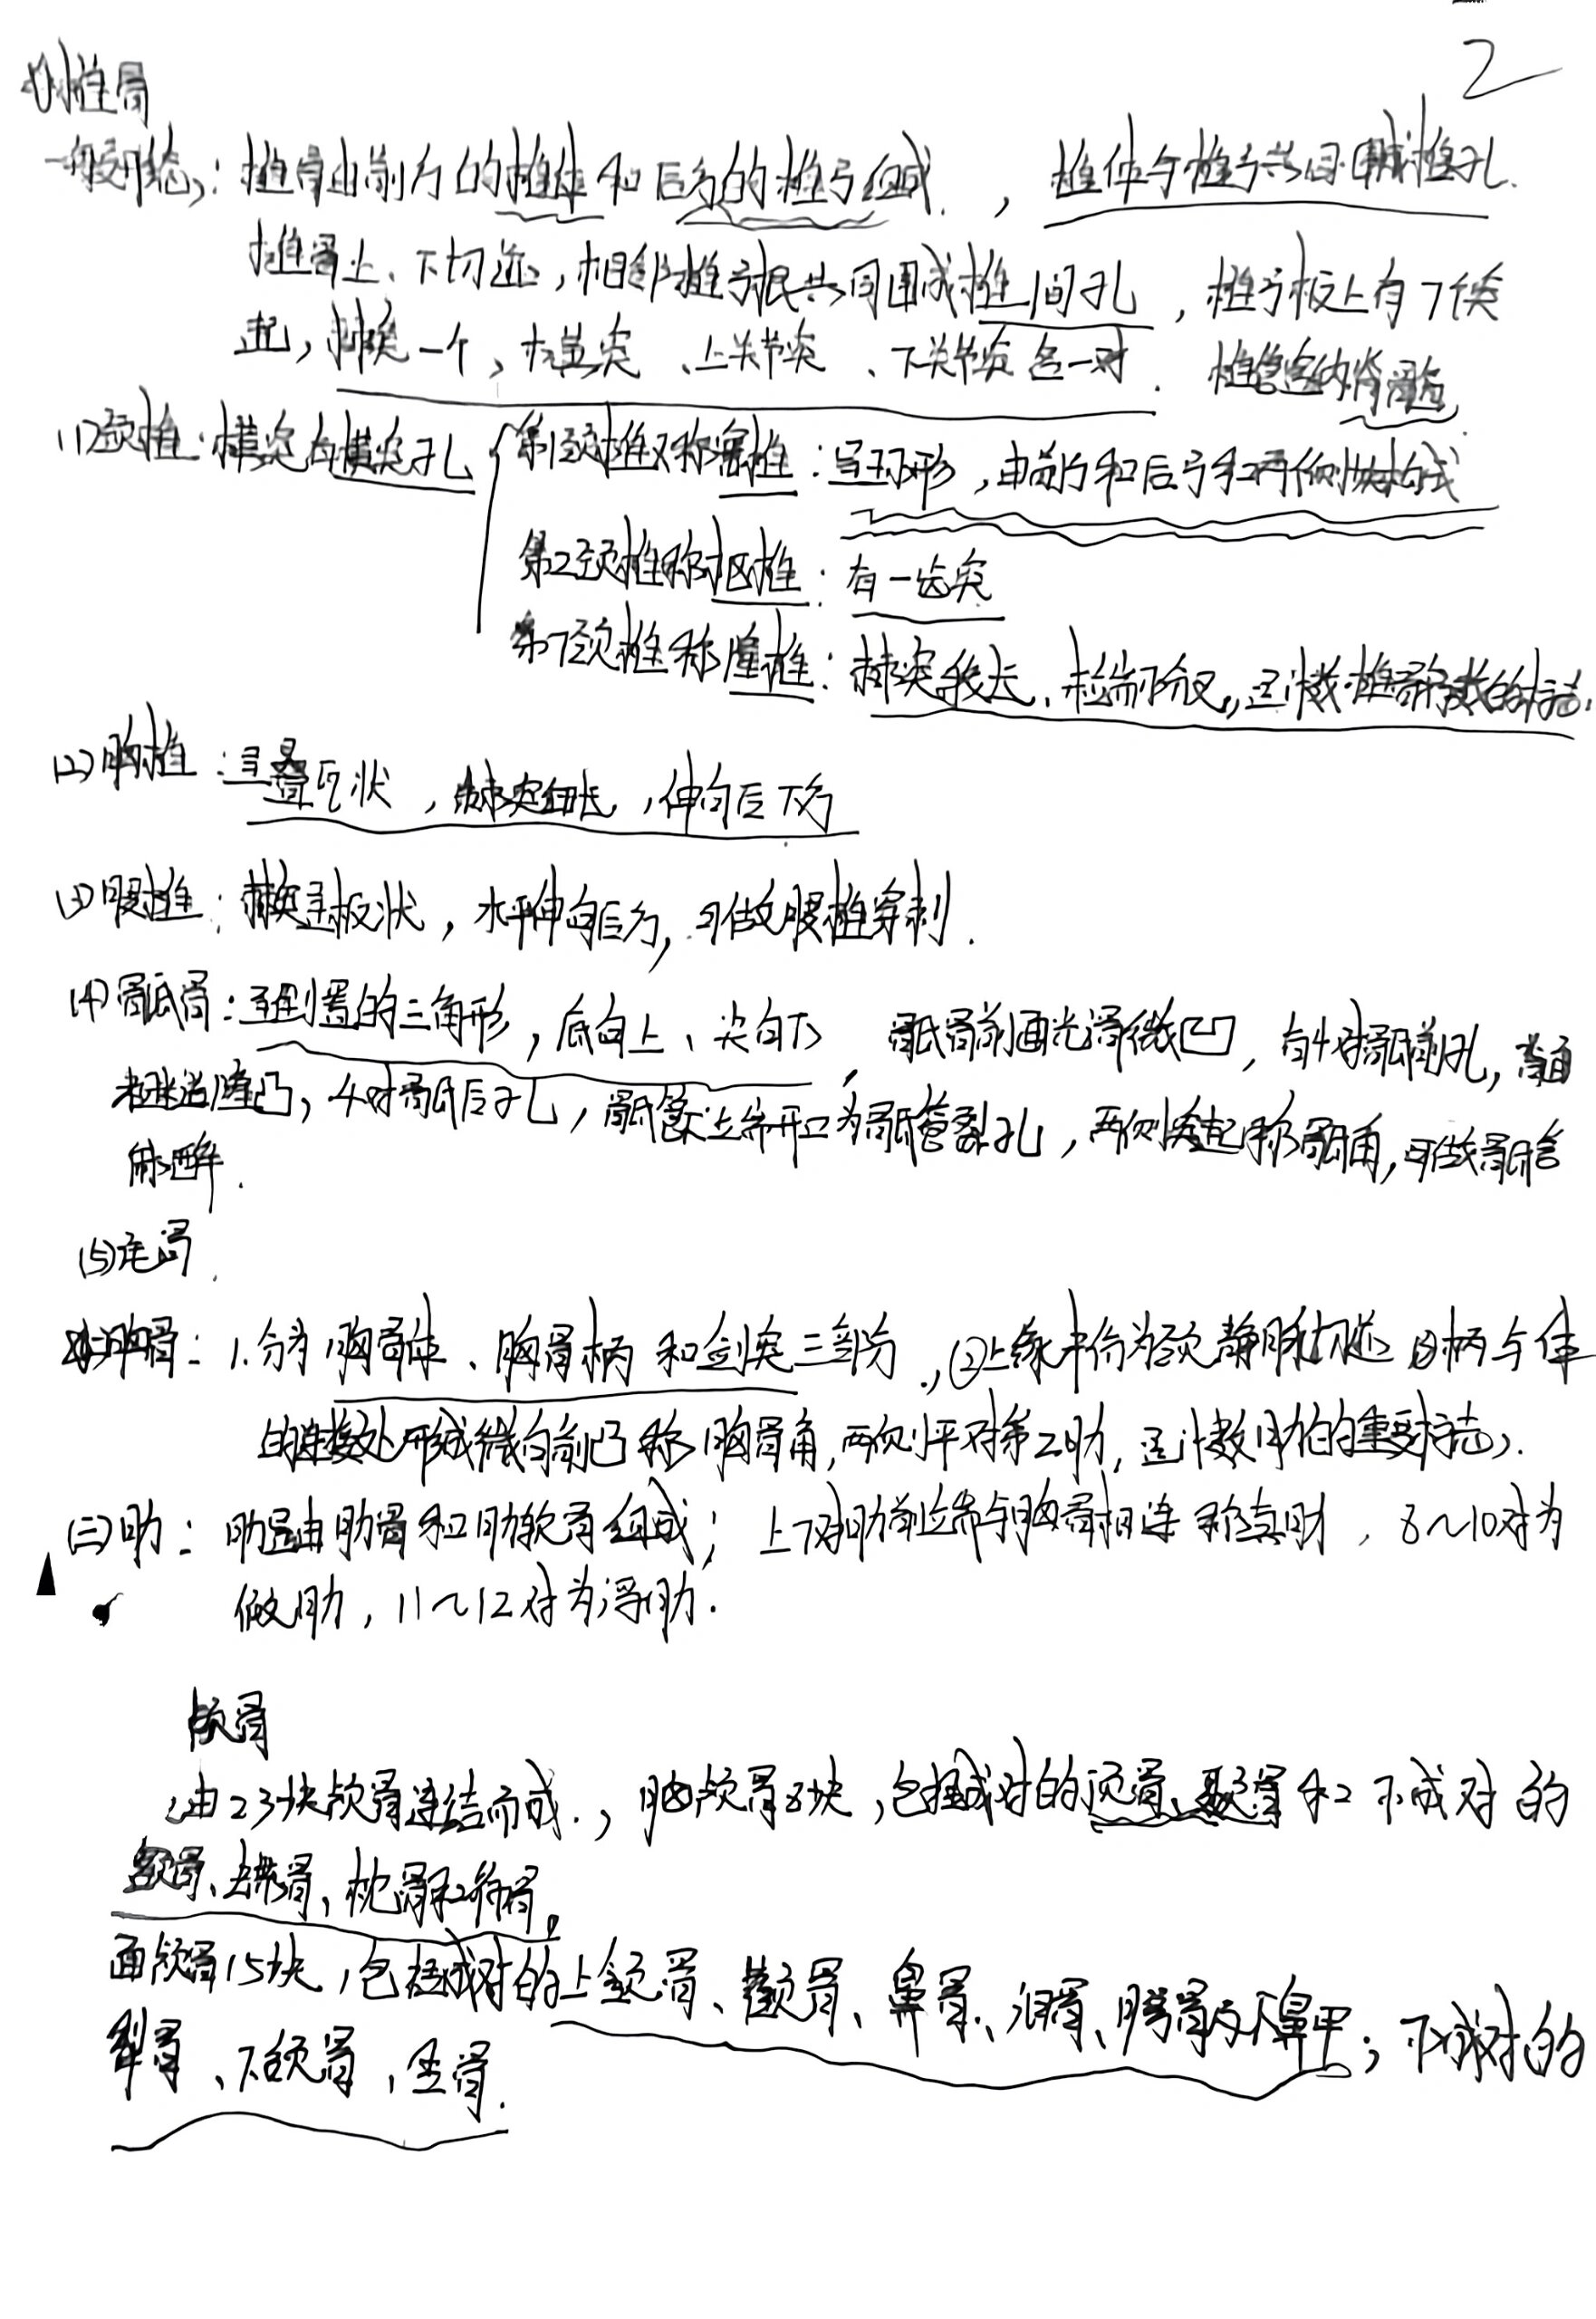 2
(一)椎骨
一般形态:椎骨由前方的椎体和后方的椎弓组成.,椎体与椎弓共同围成椎孔.
椎骨上、下切迹,相邻椎弓根共同围成椎间孔,椎弓板上有7个突
起,棘突一个,横突、上关节突、下关节突各一对.椎管容纳脊髓
(1)颈椎:横突有横突孔 第1颈椎又称寰椎:呈环形,由前弓和后弓和两侧块构成
第2颈椎称枢椎:有一齿突
第7颈椎称隆椎:棘突较长、末端不分叉,是计数椎骨序数的标志.
(2)胸椎:呈叠瓦状,棘突细长,伸向后下方
(3)腰椎:棘突呈板状,水平伸向后方,可做腰椎穿刺.
(4)骶骨:呈倒置的三角形,底向上、尖向下,骶骨前面光滑微凹,有4对骶前孔,背面
粗糙隆凸,4对骶后孔,骶管上端开口为骶管裂孔,两侧突起称骶角,可做骶管
麻醉.
(5)尾骨.
(二)胸骨:1.分为胸骨体、胸骨柄和剑突三部分.,②上缘中份为颈静脉切迹 ③柄与体
的连接处形成微向前凸称胸骨角,两侧平对第2肋,是计数肋的重要标志.
(三)肋:肋是由肋骨和肋软骨组成;上7对肋前端与胸骨相连称真肋,8~10对为
假肋,11~12对为浮肋.
颅骨
由23块颅骨连结而成.,脑颅骨8块,包括成对的顶骨、颞骨和不成对的
额骨、筛骨、枕骨和蝶骨。
面颅骨15块,包括成对的上颌骨、颧骨、鼻骨、泪骨、腭骨与下鼻甲;不成对的
犁骨、下颌骨、舌骨.